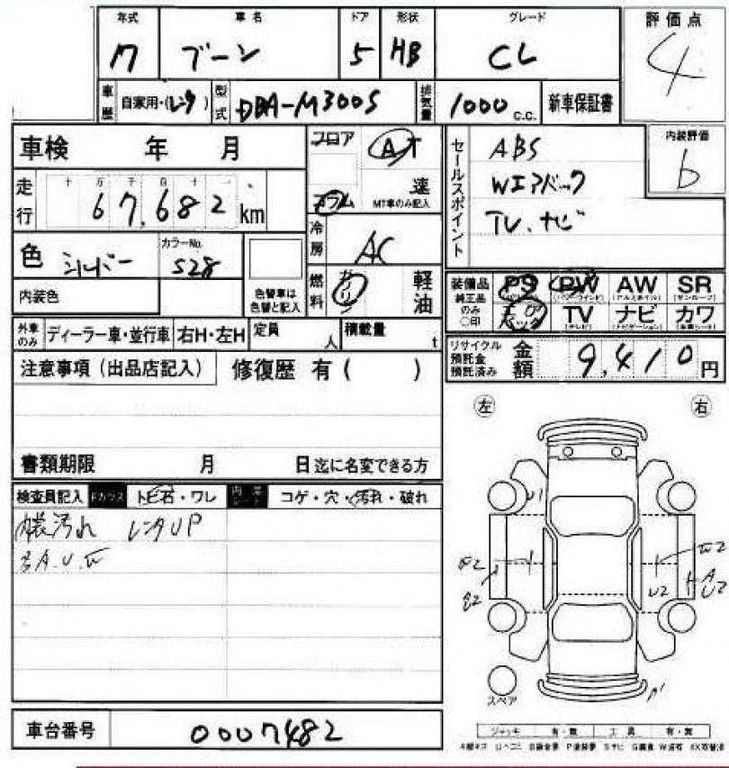 年式 車名 ドア 形状 グレード 評価点
17 ブーン 5 HB CL 4
車歴 自家用・(レンタ) 型式 DBA-M300S 排気量 1000 C.C. 新車保証書
車検 年 月
フロア AT
コラム 速
MT車のみ記入
セールスポイント
ABS
Wエアバック
TV.ナビ
内装評価
b
走行 十 万 千 百 十 一
67,682 km
色 シルバー カラーNo. S28
内装色
色替車は色替と記入
冷房 AC
燃料 ガソリン 軽油
装備品 純正品のみ○印
PS PW AW SR
(パワーウインド) (アルミホイル) (サンルーフ)
エアバック TV ナビ カワ
(テレビ) (ナビゲーション) (本革シート)
外車のみ ディーラー車・並行車 右H・左H 定員 人 積載量 t
リサイクル預託金預託済み 金額 9,410円
注意事項(出品店記入) 修復歴 有( )
書類期限 月 日迄に名変できる方
検査員記入 Fガラス トビ石・ワレ 内装シート コゲ・穴・汚れ・破れ
内装汚れ レンタUP
各A.U.
左 右
U1
U2
A
U2
スペア
車台番号 0007482
ジャッキ 有・無 工具 有・無